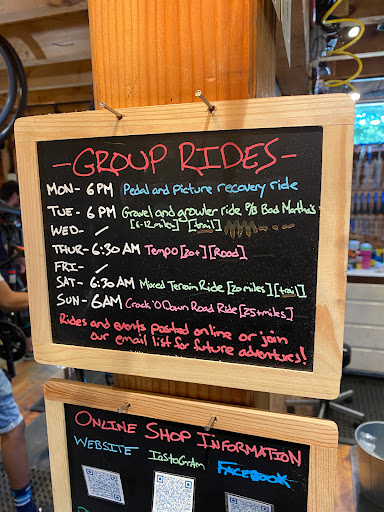 -GROUP RIDES-
MON- 6 PM Pedal and Picture recovery ride
TUE- 6 PM Gravel and growler ride P/B Bad Martha's
[8-12miles] [trail]
WED- /
THUR- 6:30 AM Tempo [20+] [Road]
FRI- /
SAT- 6:30 AM Mixed Terrain Ride [20 miles] [trail]
SUN- 6AM Crack 'O Dawn Road Ride [25+miles]
Rides and events posted online or join
our email list for future adventures!
ONLINE SHOP INFORMATION
WEBSITE INSTAGRAM FACEBOOK